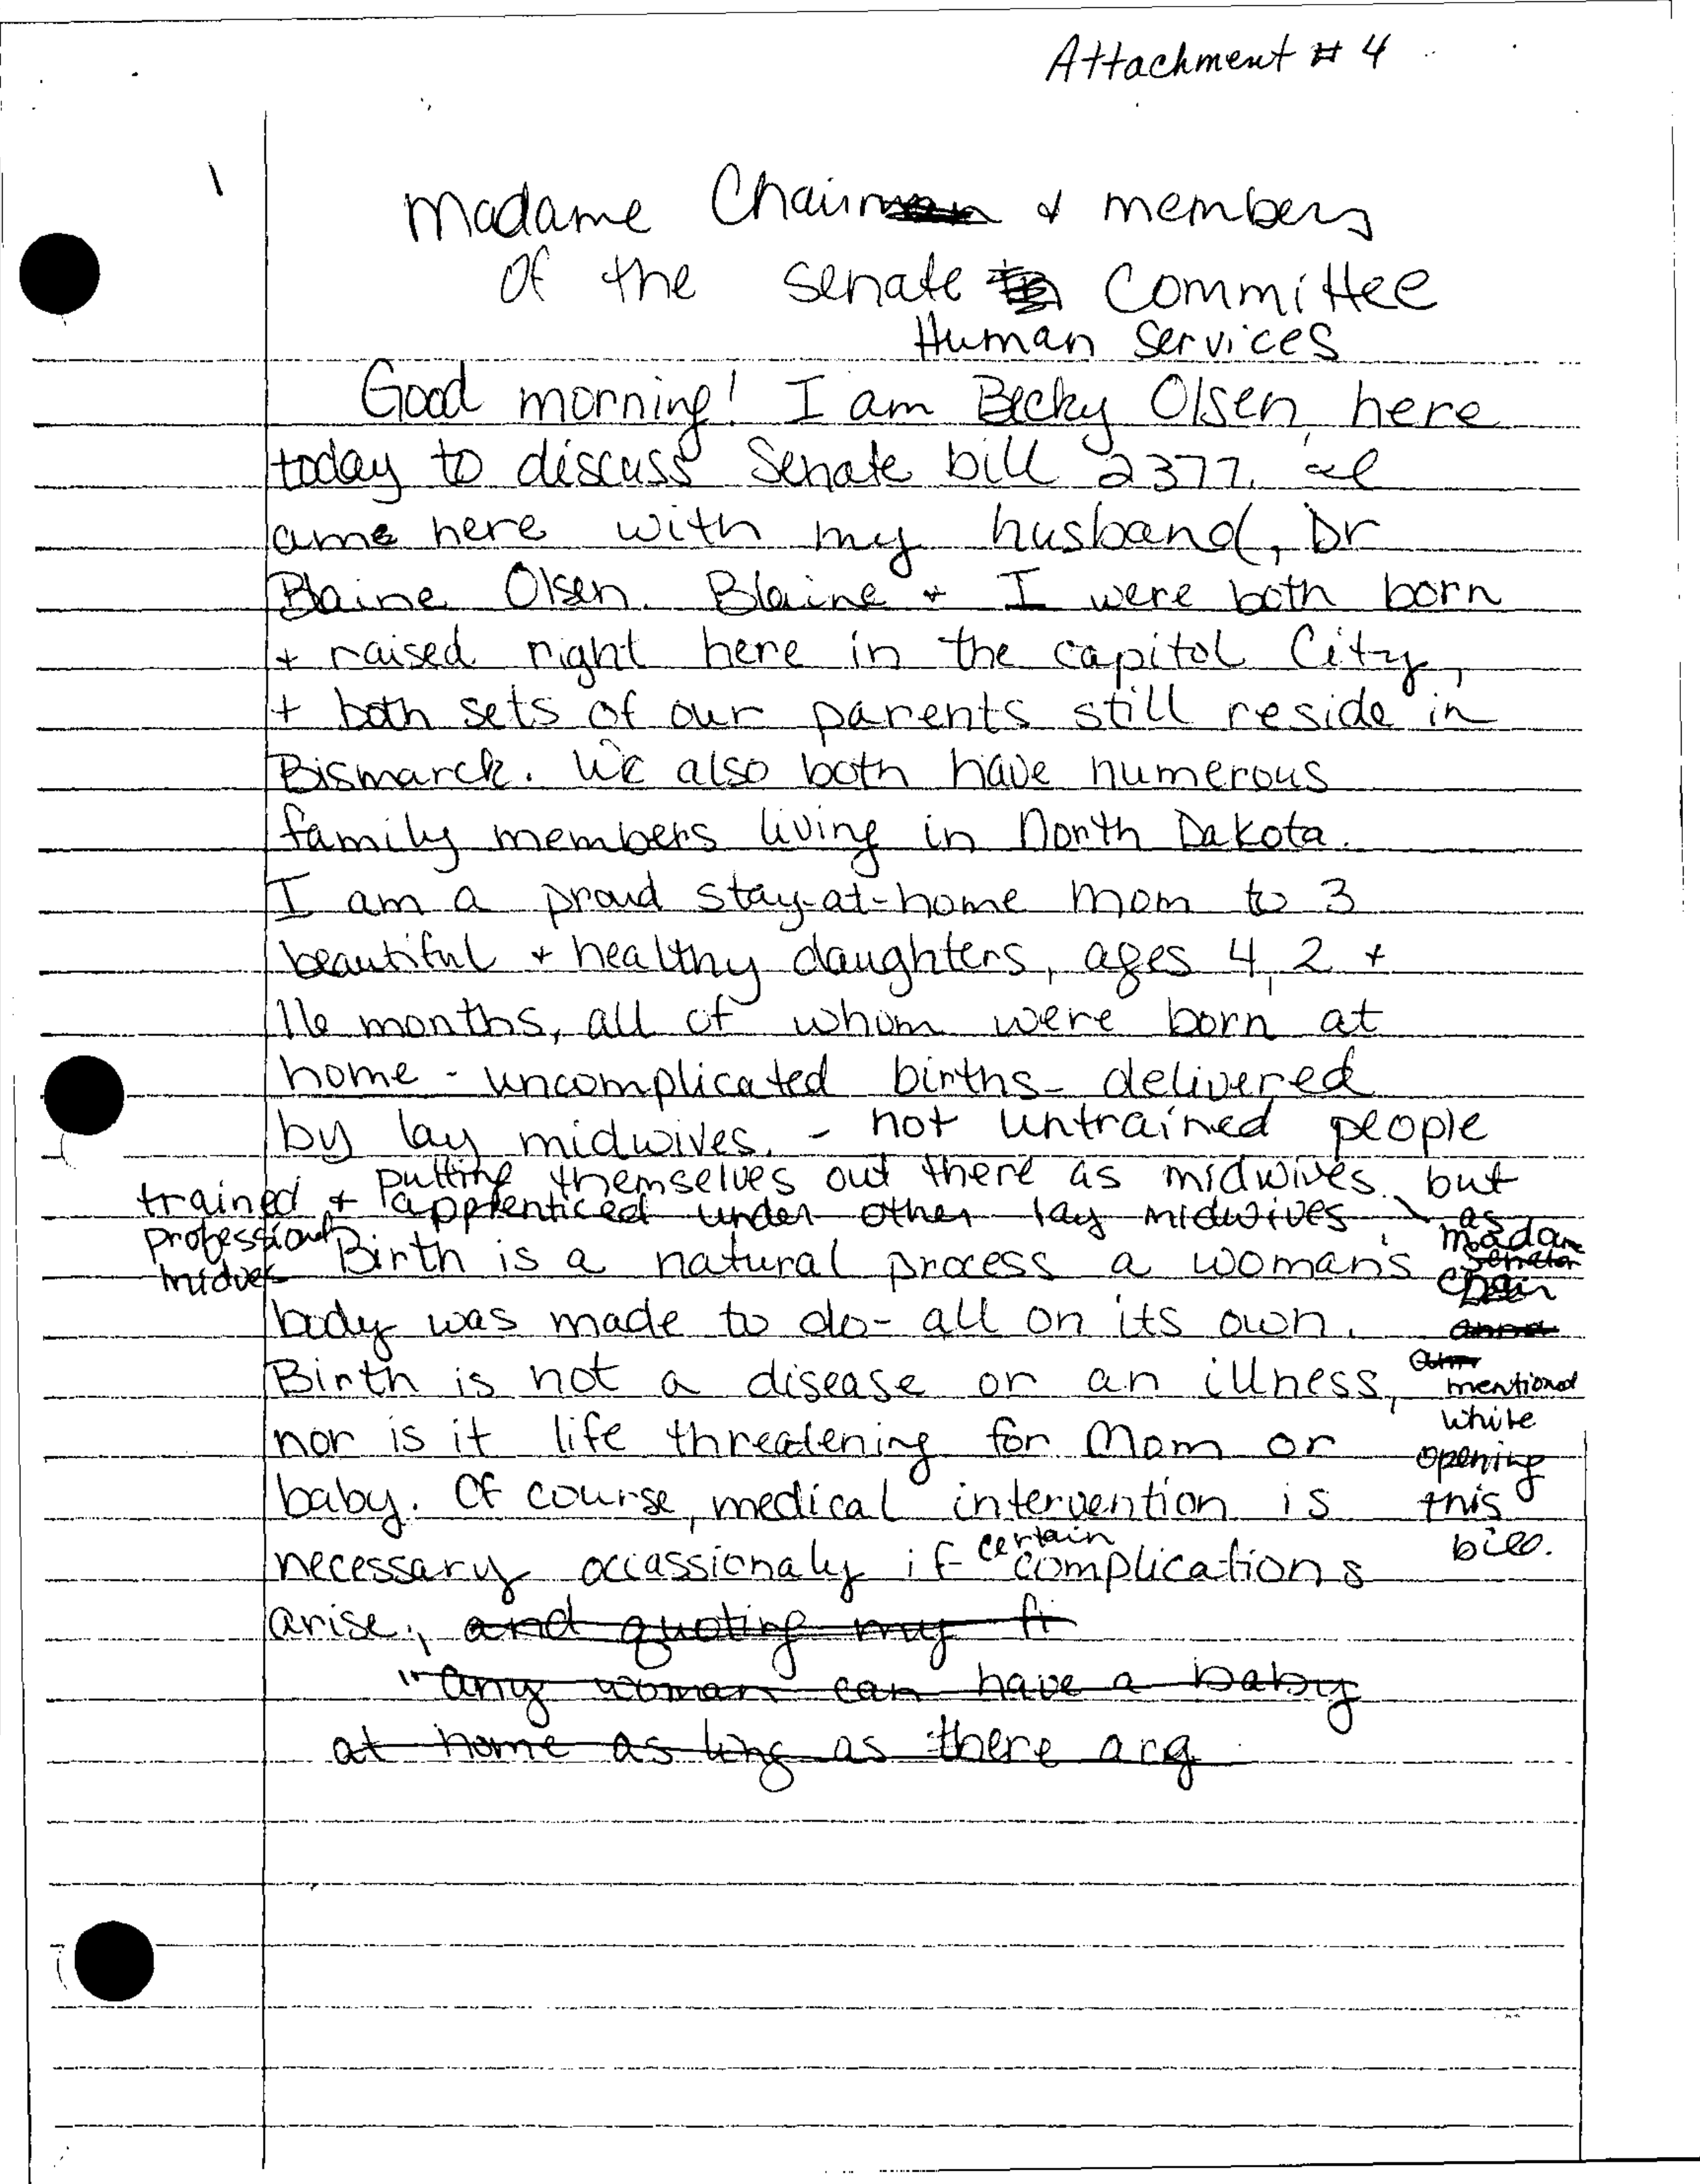 Attachment # 4
1
Madame Chairman & members
Of the Senate Committee
Human Services
Good morning! I am Becky Olsen, here
today to discuss Senate bill 2377. I
am here with my husband, Dr
Blaine Olsen. Blaine + I were both born
+ raised right here in the capitol City,
+ both sets of our parents still reside in
Bismarck. We also both have numerous
family members living in North Dakota.
I am a proud stay-at-home Mom to 3
beautiful + healthy daughters, ages 4, 2 +
16 months, all of whom were born at
home - uncomplicated births - delivered
by lay midwives. - not untrained people
putting themselves out there as midwives, but
trained + apprenticed under other lay midwives
professional
midwives
as
madam
senator
chair
mentioned
while
opening
this
bill.
Birth is a natural process a woman's
body was made to do - all on its own.
Birth is not a disease or an illness,
nor is it life threatening for Mom or
baby. Of course, medical intervention is
necessary occassionaly if certain complications
arise., and quoting my fi
"any woman can have a baby
at home as long as there arg